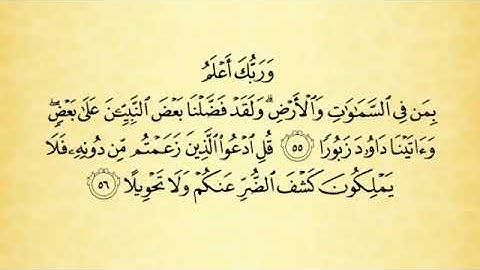 وَرَبُّكَ أَعْلَمُ
بِمَن فِي السَّمَٰوَٰتِ وَالْأَرْضِ ۗ وَلَقَدْ فَضَّلْنَا بَعْضَ النَّبِيِّـۧنَ عَلَىٰ بَعْضٍ ۖ
وَءَاتَيْنَا دَاوُۥدَ زَبُورًا ۝٥٥ قُلِ ادْعُوا الَّذِينَ زَعَمْتُم مِّن دُونِهِۦ فَلَا
يَمْلِكُونَ كَشْفَ الضُّرِّ عَنكُمْ وَلَا تَحْوِيلًا ۝٥٦